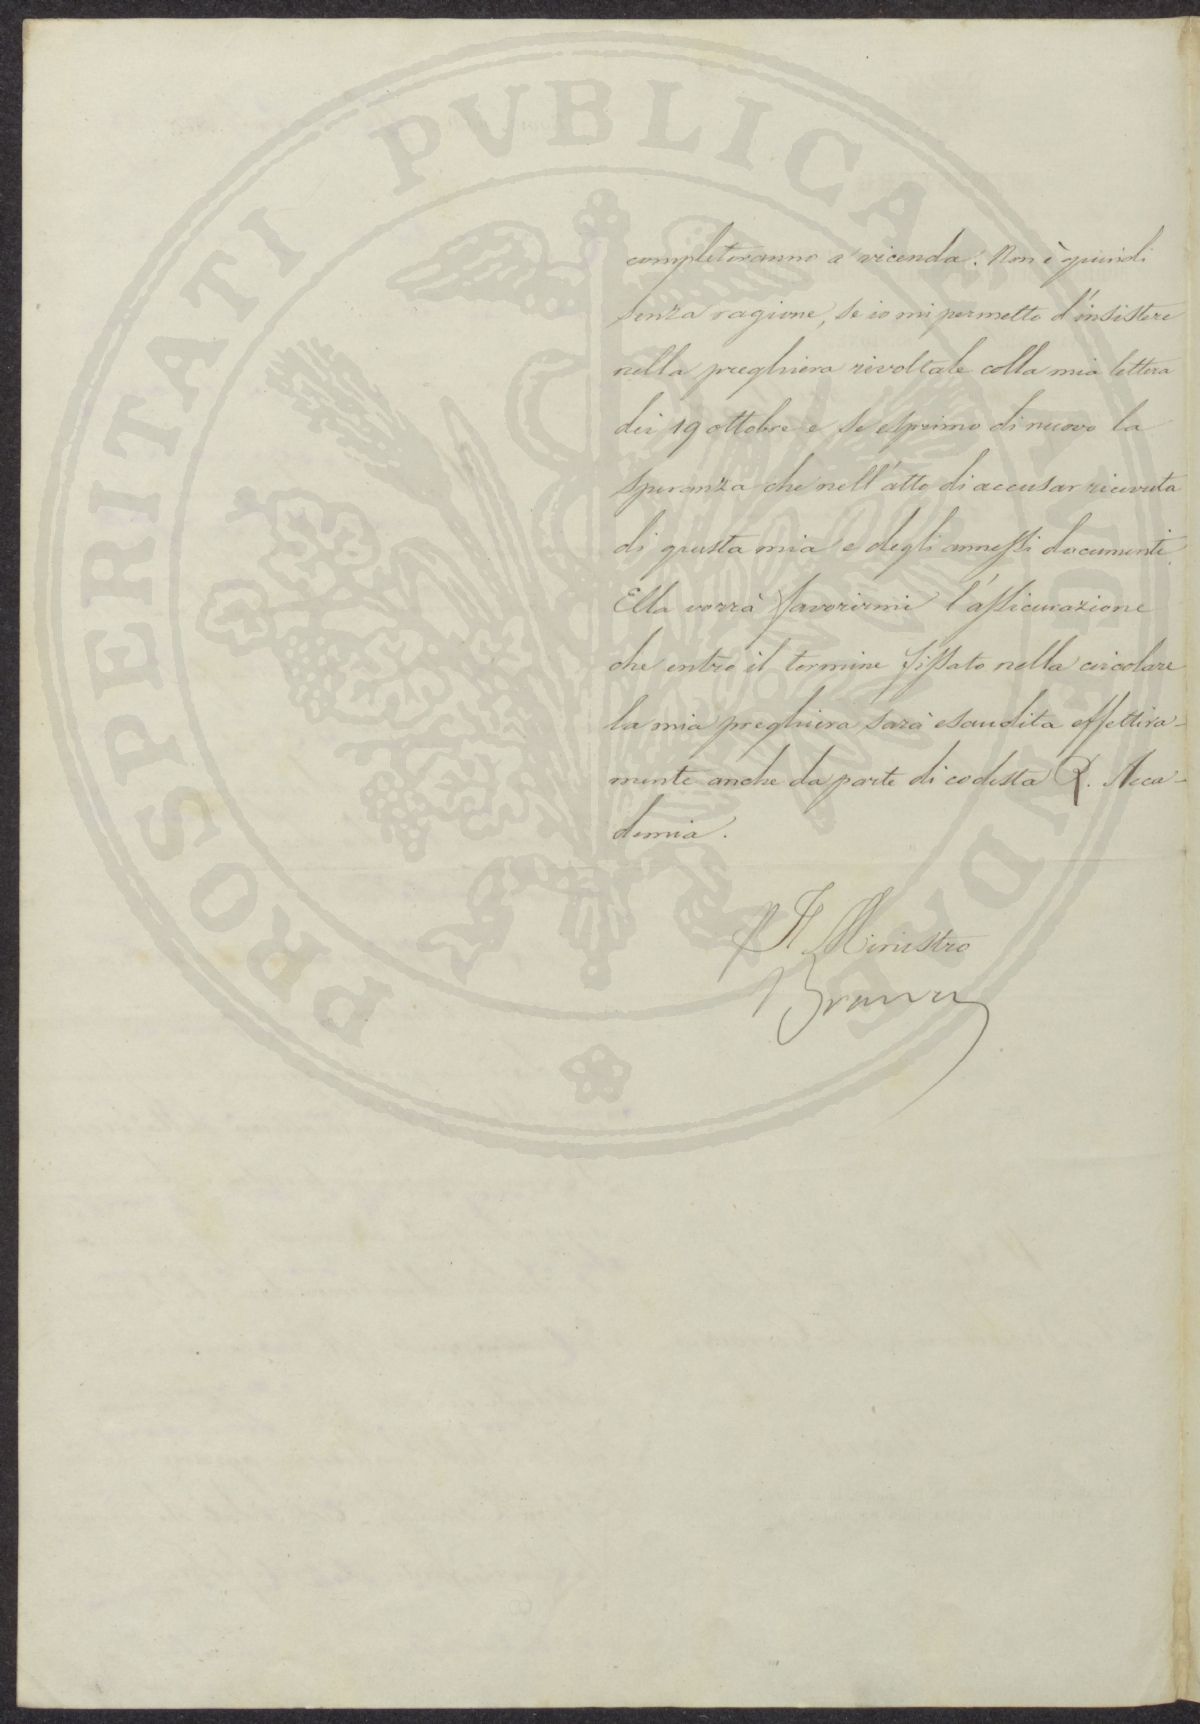 PROSPERITATI PUBLICAE AUGENDAE
completeranno a vicenda. Non è quindi
senza ragione, se io mi permetto d'insistere
nella preghiera rivoltale colla mia lettera
dei 19 ottobre e se esprimo di nuovo la
speranza che nell'atto di accusar ricevuta
di questa mia e degli annessi documenti
Ella vorrà favorirmi l'assicurazione
che entro il termine fissato nella circolare
la mia preghiera sarà esaudita effettiva-
mente anche da parte di codesta R. Acca-
demia.
Il Ministro